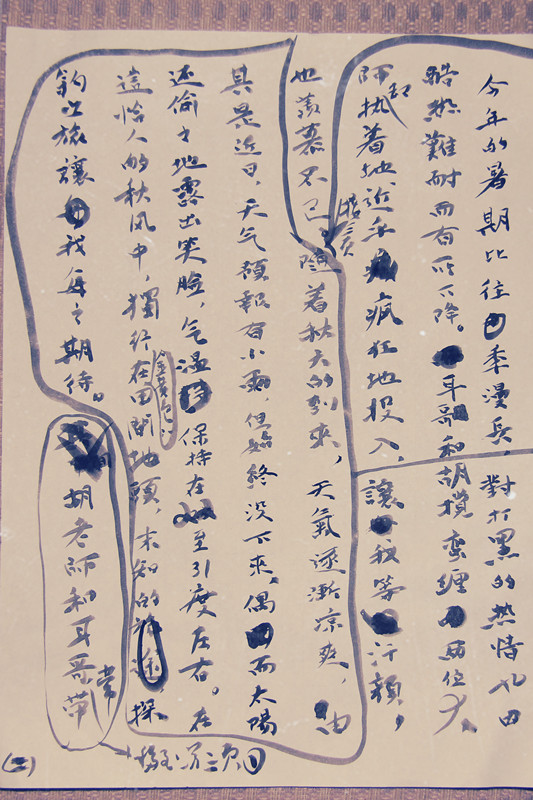 今年的暑期比往季漫長，對打黑的热情也由
酷热難耐而有所下降。耳哥和胡攪蠻缠两位大
师却执着地近乎疯狂地投入，讓我等汗颜，
也羡慕不已。隨着秋天的到來，天氣逐漸凉爽，由
其是近日，天气预報有小雨，但始終没下來，偶而太陽
还偷々地露出笑臉，气温保持在至21度左右。在
這怡人的秋风中，獨行在金黄色田間地頭，未知的旅途，探
钓之旅讓我每之期待。
胡老师和耳哥常带
(二)